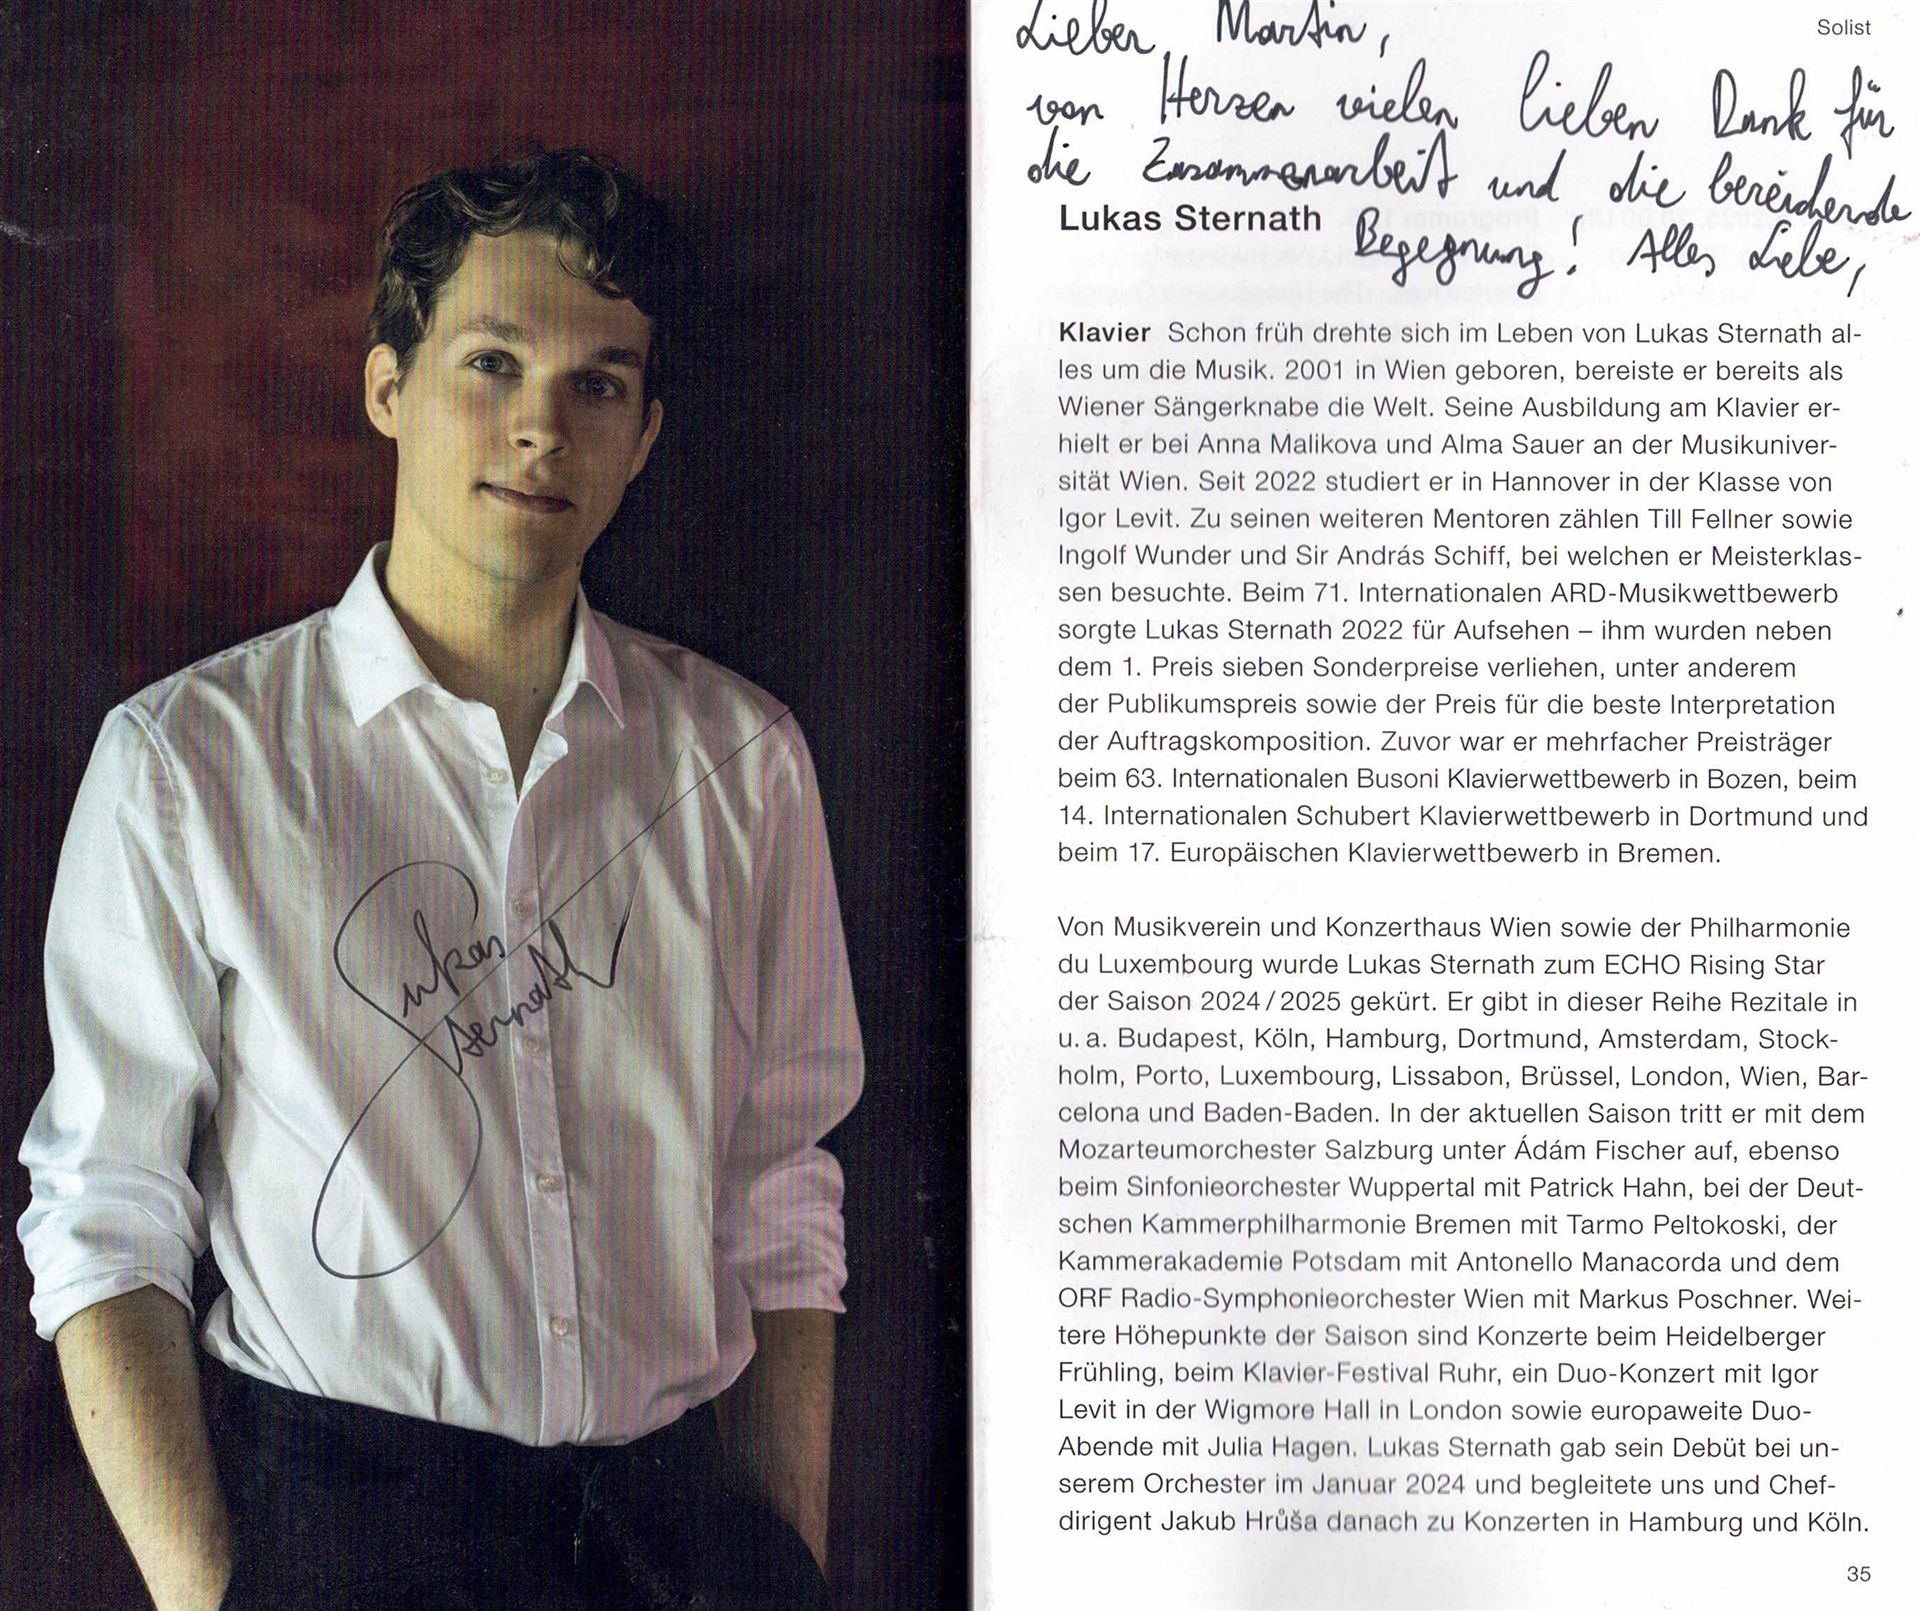 Lieber Martin,
Solist
von Herzen vielen lieben Dank für
die Zusammenarbeit und die bereichernde
Lukas Sternath
Begegnung! Alles Liebe,
Klavier Schon früh drehte sich im Leben von Lukas Sternath al-
les um die Musik. 2001 in Wien geboren, bereiste er bereits als
Wiener Sängerknabe die Welt. Seine Ausbildung am Klavier er-
hielt er bei Anna Malikova und Alma Sauer an der Musikuniver-
sität Wien. Seit 2022 studiert er in Hannover in der Klasse von
Igor Levit. Zu seinen weiteren Mentoren zählen Till Fellner sowie
Ingolf Wunder und Sir András Schiff, bei welchen er Meisterklas-
sen besuchte. Beim 71. Internationalen ARD-Musikwettbewerb
sorgte Lukas Sternath 2022 für Aufsehen – ihm wurden neben
dem 1. Preis sieben Sonderpreise verliehen, unter anderem
der Publikumspreis sowie der Preis für die beste Interpretation
der Auftragskomposition. Zuvor war er mehrfacher Preisträger
beim 63. Internationalen Busoni Klavierwettbewerb in Bozen, beim
14. Internationalen Schubert Klavierwettbewerb in Dortmund und
beim 17. Europäischen Klavierwettbewerb in Bremen.
Von Musikverein und Konzerthaus Wien sowie der Philharmonie
du Luxembourg wurde Lukas Sternath zum ECHO Rising Star
der Saison 2024/2025 gekürt. Er gibt in dieser Reihe Rezitale in
u. a. Budapest, Köln, Hamburg, Dortmund, Amsterdam, Stock-
holm, Porto, Luxembourg, Lissabon, Brüssel, London, Wien, Bar-
celona und Baden-Baden. In der aktuellen Saison tritt er mit dem
Mozarteumorchester Salzburg unter Ádám Fischer auf, ebenso
beim Sinfonieorchester Wuppertal mit Patrick Hahn, bei der Deut-
schen Kammerphilharmonie Bremen mit Tarmo Peltokoski, der
Kammerakademie Potsdam mit Antonello Manacorda und dem
ORF Radio-Symphonieorchester Wien mit Markus Poschner. Wei-
tere Höhepunkte der Saison sind Konzerte beim Heidelberger
Frühling, beim Klavier-Festival Ruhr, ein Duo-Konzert mit Igor
Levit in der Wigmore Hall in London sowie europaweite Duo-
Abende mit Julia Hagen. Lukas Sternath gab sein Debüt bei un-
serem Orchester im Januar 2024 und begleitete uns und Chef-
dirigent Jakub Hrůša danach zu Konzerten in Hamburg und Köln.
35
Lukas
Sternath